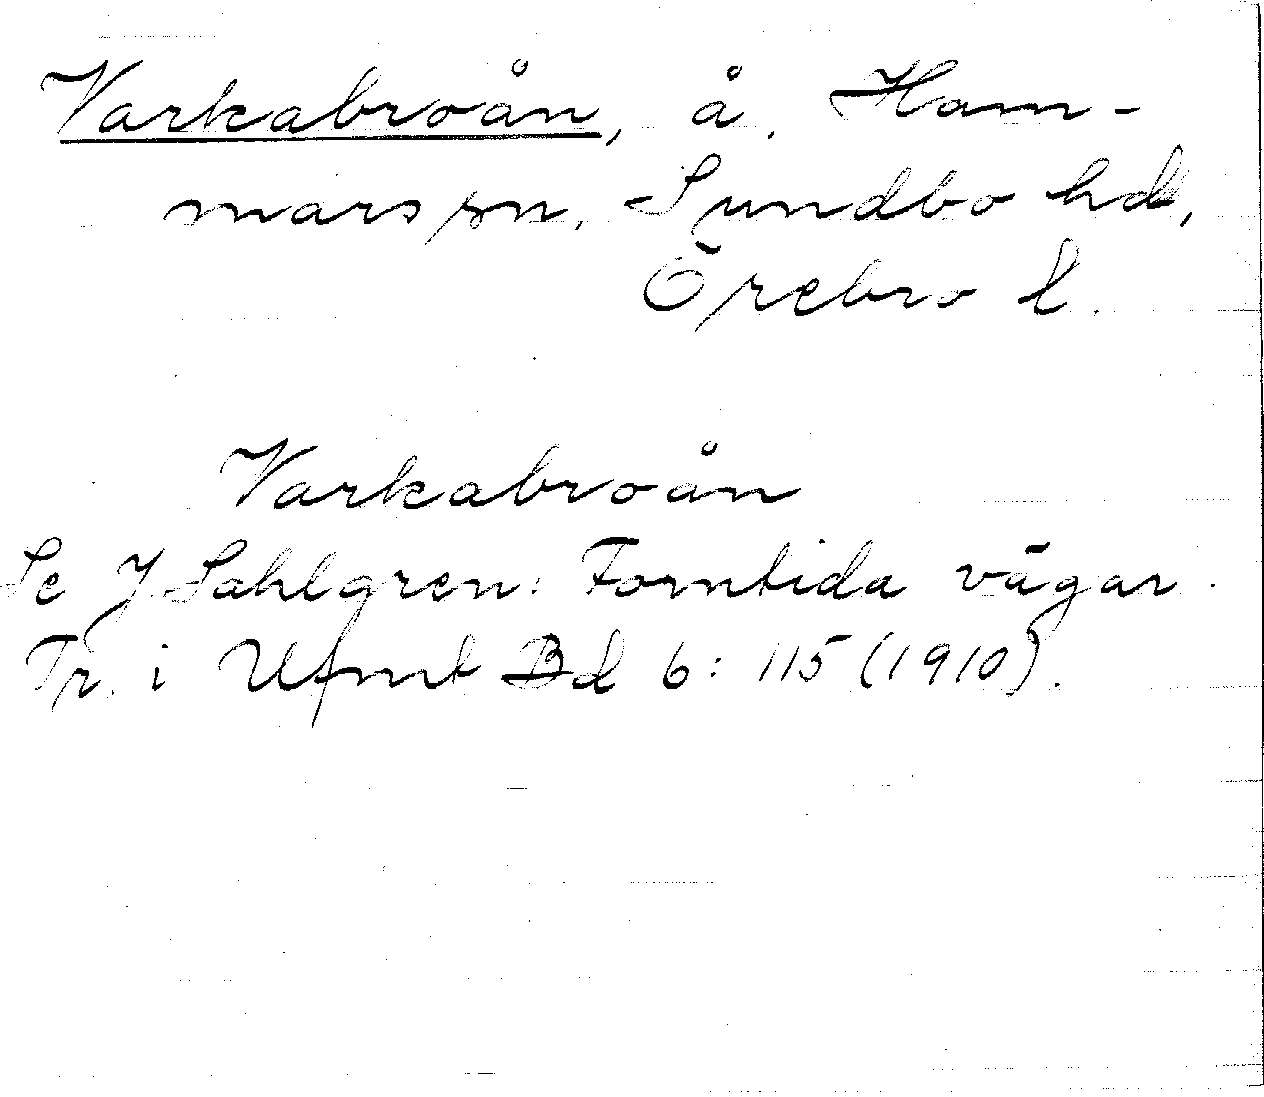 Varkabroån, å. Ham-
mars sn. Sundbo hd,
Örebro l.
Varkabroån
Se J Sahlgren: Forntida vägar.
Tr. i Ufmt Bd 6: 115 (1910).